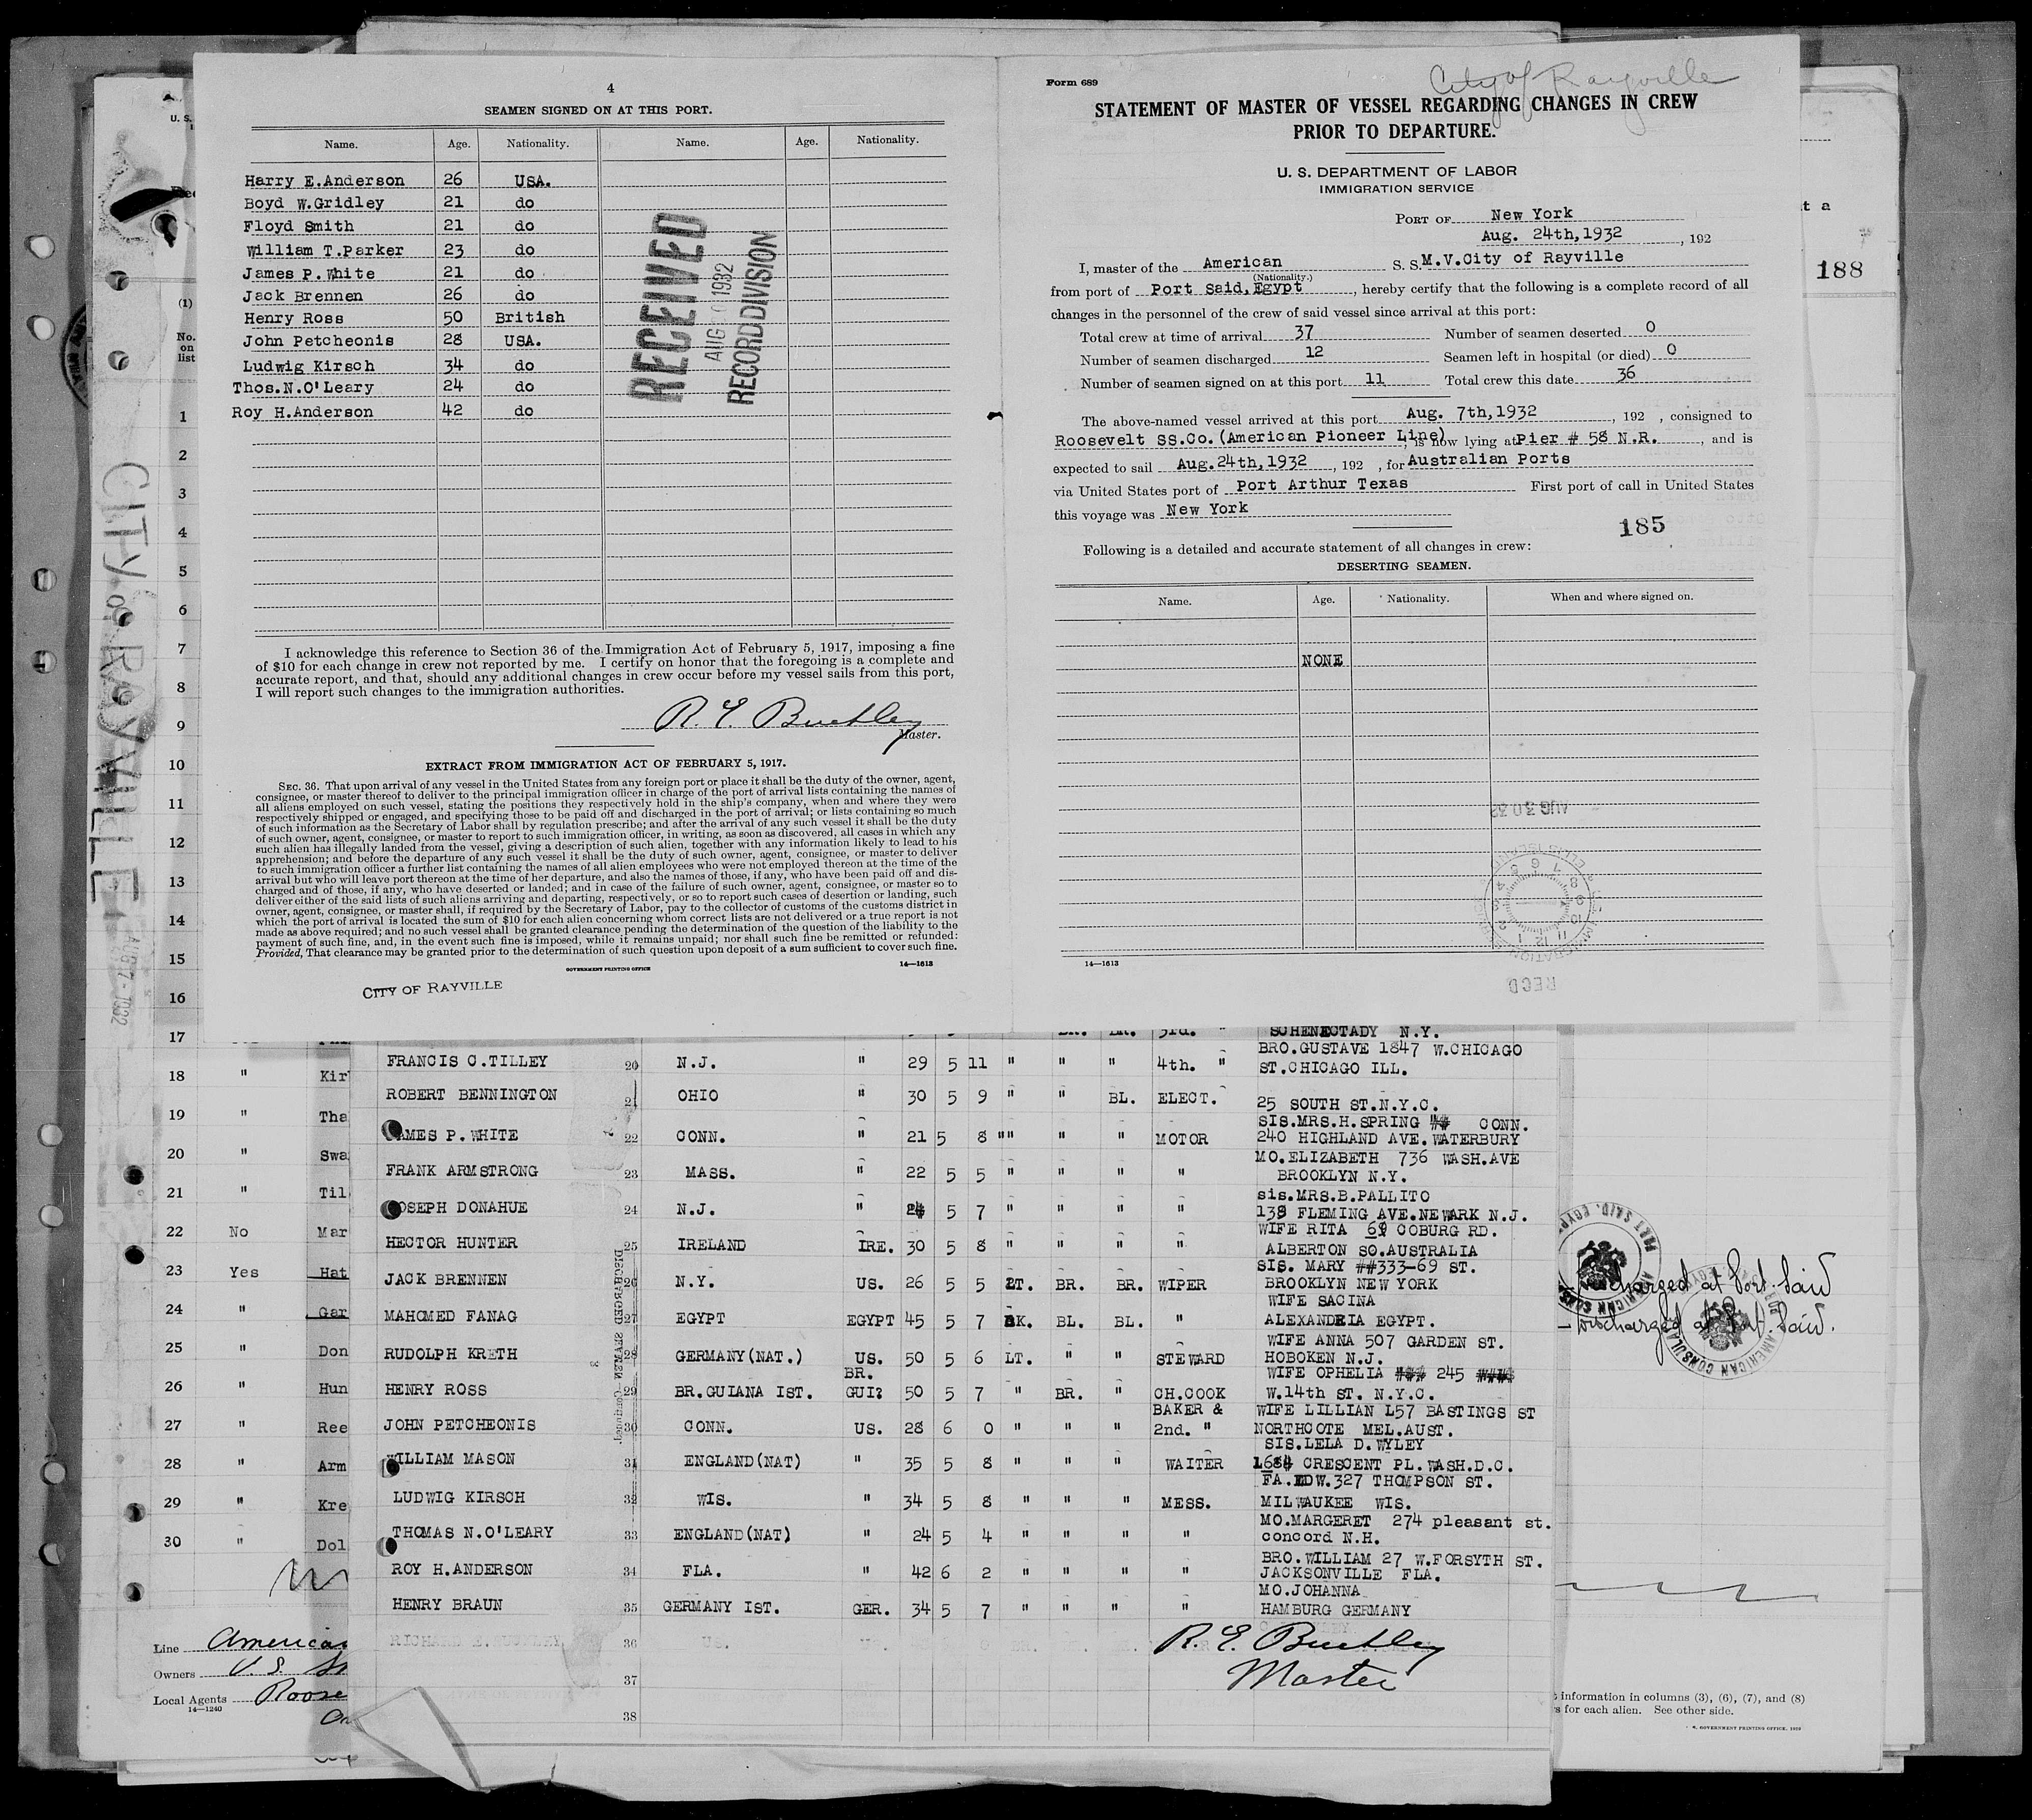 4
SEAMEN SIGNED ON AT THIS PORT.
Name. Age. Nationality. Name. Age. Nationality.
Harry E.Anderson 26 USA.
Boyd W.Gridley 21 do
Floyd Smith 21 do
William T.Parker 23 do
James P.White 21 do
Jack Brennen 26 do
Henry Ross 50 British
John Petcheonis 28 USA.
Ludwig Kirsch 34 do
Thos.N.O'Leary 24 do
Roy H.Anderson 42 do
RECEIVED
AUG 1932
RECORD DIVISION
I acknowledge this reference to Section 36 of the Immigration Act of February 5, 1917, imposing a fine
of $10 for each change in crew not reported by me. I certify on honor that the foregoing is a complete and
accurate report, and that, should any additional changes in crew occur before my vessel sails from this port,
I will report such changes to the immigration authorities.
R. E. Buckley
Master.
EXTRACT FROM IMMIGRATION ACT OF FEBRUARY 5, 1917.
SEC. 36. That upon arrival of any vessel in the United States from any foreign port or place it shall be the duty of the owner, agent,
consignee, or master thereof to deliver to the principal immigration officer in charge of the port of arrival lists containing the names of
all aliens employed on such vessel, stating the positions they respectively hold in the ship's company, when and where they were
respectively shipped or engaged, and specifying those to be paid off and discharged in the port of arrival; or lists containing so much
of such information as the Secretary of Labor shall by regulation prescribe; and after the arrival of any such vessel it shall be the duty
of such owner, agent, consignee, or master to report to such immigration officer, in writing, as soon as discovered, all cases in which any
such alien has illegally landed from the vessel, giving a description of such alien, together with any information likely to lead to his
apprehension; and before the departure of any such vessel it shall be the duty of such owner, agent, consignee, or master to deliver
to such immigration officer a further list containing the names of all alien employees who were not employed thereon at the time of the
arrival but who will leave port thereon at the time of her departure, and also the names of those, if any, who have been paid off and dis-
charged and of those, if any, who have deserted or landed; and in case of the failure of such owner, agent, consignee, or master so to
deliver either of the said lists of such aliens arriving and departing, respectively, or so to report such cases of desertion or landing, such
owner, agent, consignee, or master shall, if required by the Secretary of Labor, pay to the collector of customs of the customs district in
which the port of arrival is located the sum of $10 for each alien concerning whom correct lists are not delivered or a true report is not
made as above required; and no such vessel shall be granted clearance pending the determination of the question of the liability to the
payment of such fine, and, in the event such fine is imposed, while it remains unpaid; nor shall such fine be remitted or refunded:
Provided, That clearance may be granted prior to the determination of such question upon deposit of a sum sufficient to cover such fine.
GOVERNMENT PRINTING OFFICE 14—1613
CITY OF RAYVILLE
Form 689
City of Rayville
STATEMENT OF MASTER OF VESSEL REGARDING CHANGES IN CREW
PRIOR TO DEPARTURE.
U. S. DEPARTMENT OF LABOR
IMMIGRATION SERVICE
PORT OF New York
Aug. 24th,1932 , 192
I, master of the American S. S. M.V.City of Rayville
(Nationality.)
from port of Port Said,Egypt , hereby certify that the following is a complete record of all
changes in the personnel of the crew of said vessel since arrival at this port:
Total crew at time of arrival 37 Number of seamen deserted 0
Number of seamen discharged 12 Seamen left in hospital (or died) 0
Number of seamen signed on at this port 11 Total crew this date 36
The above-named vessel arrived at this port Aug. 7th,1932 , 192 , consigned to
Roosevelt SS.Co.(American Pioneer Line) , is now lying at Pier # 58 N.R. , and is
expected to sail Aug.24th,1932 , 192 , for Australian Ports
via United States port of Port Arthur Texas First port of call in United States
this voyage was New York
185
Following is a detailed and accurate statement of all changes in crew:
DESERTING SEAMEN.
Name. Age. Nationality. When and where signed on.
NONE
AUG 30 32
RECD
14—1613
t a
188
U. S.
(1)
No. on list
CITY OF RAYVILLE
AUG 7 - 1932
1
2
3
4
5
6
7
8
9
10
11
12
13
14
15
16
17
18 " Kir
19 " Tha
20 " Swa
21 " Til
22 No Mar
23 Yes Hat
24 " Gar
25 " Don
26 " Hun
27 " Ree
28 " Arm
29 " Kre
30 " Dol
3rd. " SCHENECTADY N.Y.
FRANCIS C.TILLEY 20 N.J. " 29 5 11 " " " 4th. " BRO.GUSTAVE 1847 W.CHICAGO
ST.CHICAGO ILL.
ROBERT BENNINGTON 21 OHIO " 30 5 9 " " BL. ELECT. 25 SOUTH ST.N.Y.C.
SIS.MRS.H.SPRING CONN.
AMES P.WHITE 22 CONN. " 21 5 8 "" " " MOTOR 240 HIGHLAND AVE.WATERBURY
MO.ELIZABETH 736 WASH.AVE
FRANK ARMSTRONG 23 MASS. " 22 5 5 " " " " BROOKLYN N.Y.
sis.MRS.B.PALLITO
OSEPH DONAHUE 24 N.J. " 24 5 7 " " " " 138 FLEMING AVE.NEWARK N.J.
WIFE RITA 69 COBURG RD.
HECTOR HUNTER 25 IRELAND IRE. 30 5 8 " " " " ALBERTON SO.AUSTRALIA
SIS. MARY ##333-69 ST.
JACK BRENNEN 26 N.Y. US. 26 5 5 LT. BR. BR. WIPER BROOKLYN NEW YORK
WIFE SACINA
MAHOMED FANAG 27 EGYPT EGYPT 45 5 7 BK. BL. BL. " ALEXANDRIA EGYPT.
WIFE ANNA 507 GARDEN ST.
RUDOLPH KRETH 28 GERMANY(NAT.) US. 50 5 6 LT. " " STEWARD HOBOKEN N.J.
BR. WIFE OPHELIA ### 245 ####
HENRY ROSS 29 BR.GUIANA IST. GUI? 50 5 7 " BR. " CH.COOK W.14th ST. N.Y.C.
BAKER & WIFE LILLIAN L57 BASTINGS ST
JOHN PETCHEONIS 30 CONN. US. 28 6 0 " " " 2nd. " NORTHCOTE MEL.AUST.
SIS.LELA D.WYLEY
WILLIAM MASON 31 ENGLAND(NAT) " 35 5 8 " " " WAITER 1684 CRESCENT PL.WASH.D.C.
FA.EDW.327 THOMPSON ST.
LUDWIG KIRSCH 32 WIS. " 34 5 8 " " " MESS. MILWAUKEE WIS.
MO.MARGERET 274 pleasant st.
THOMAS N.O'LEARY 33 ENGLAND(NAT) " 24 5 4 " " " " concord N.H.
BRO.WILLIAM 27 W.FORSYTH ST.
ROY H.ANDERSON 34 FLA. " 42 6 2 " " " " JACKSONVILLE FLA.
MO.JOHANNA
HENRY BRAUN 35 GERMANY IST. GER. 34 5 7 " " " " HAMBURG GERMANY
36
37
38
R. E. Buckley
Master
DISCHARGED SEAMEN—Continued.
Discharged at Port Said
Discharged at Port Said.
AMERICAN CONSULATE PORT SAID, EGYPT
Line America
Owners U. S.
Local Agents Roose
14—1240
information in columns (3), (6), (7), and (8)
s for each alien. See other side.
GOVERNMENT PRINTING OFFICE